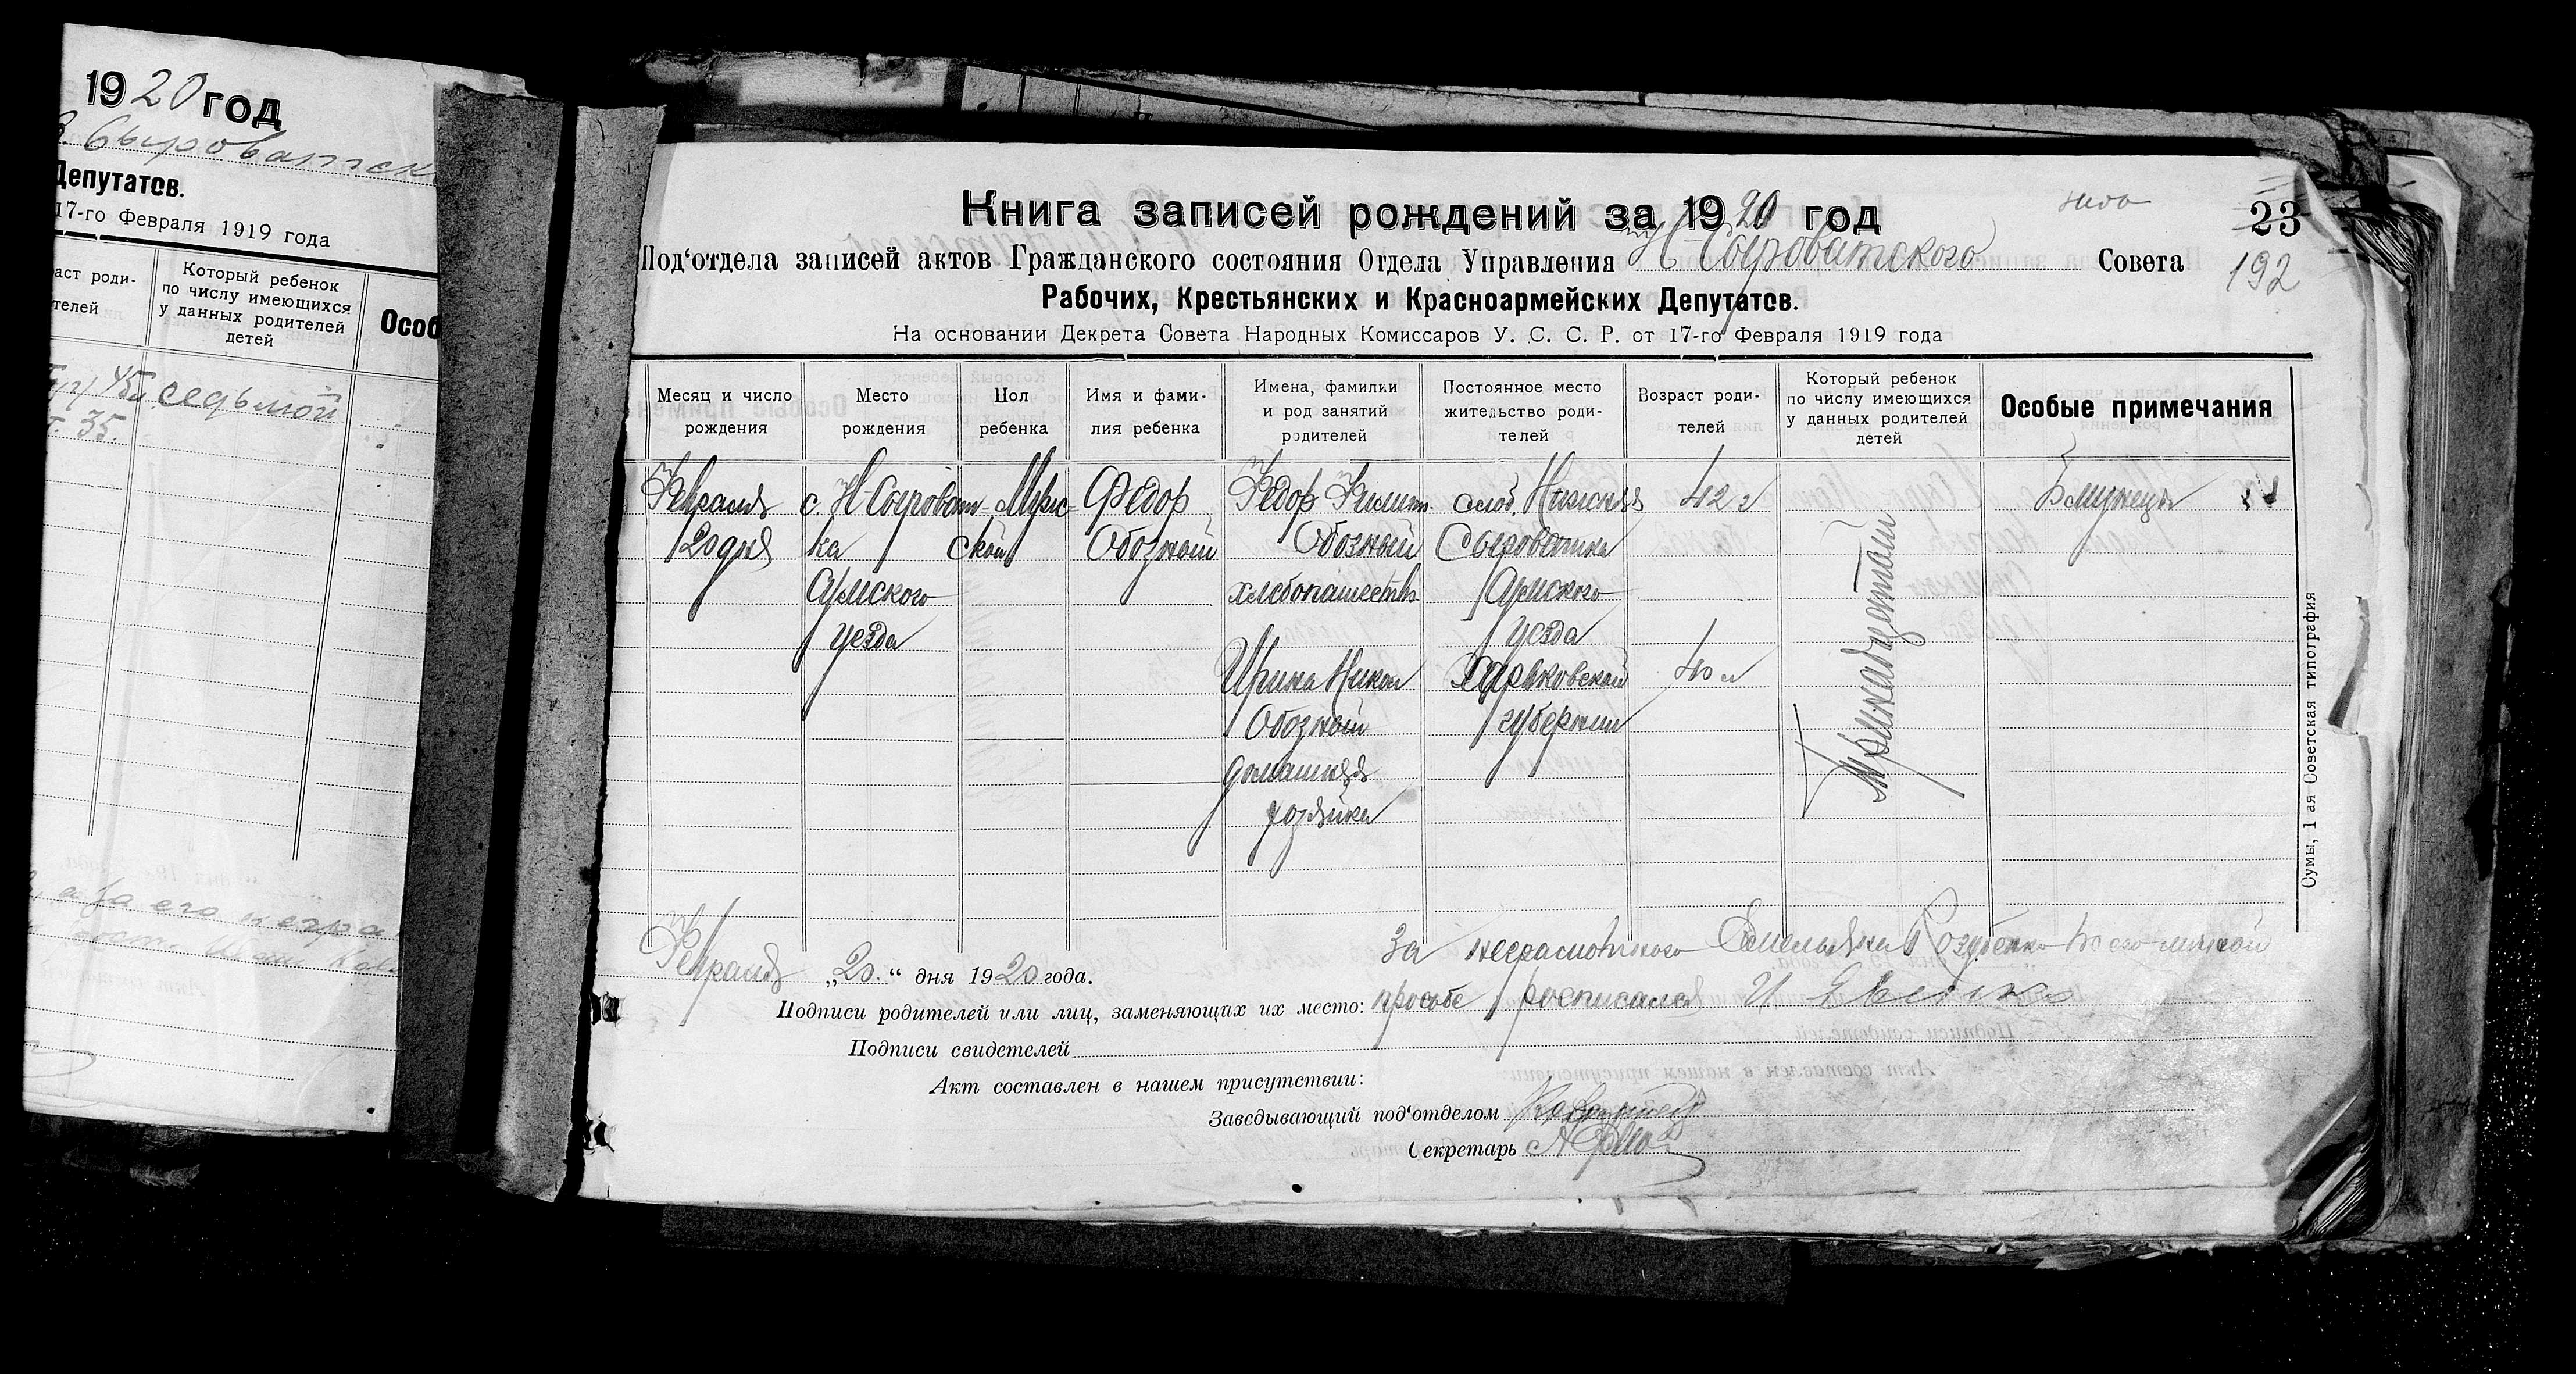 1920 год
Сыроватск
Депутатов.
17-го Февраля 1919 года
аст роди-
телей
Который ребенок
по числу имеющихся
у данных родителей
детей
Особ
45
седьмой
35.
а за его негра
Книга записей рождений за 1920 год
23
Под‘отдела записей актов Гражданского состояния Отдела Управления Н-Сыроватского Совета
192
Рабочих, Крестьянских и Красноармейских Депутатов.
На основании Декрета Совета Народных Комиссаров У. С. С. Р. от 17-го Февраля 1919 года
Месяц и число
рождения
Место
рождения
Пол
ребенка
Имя и фами-
лия ребенка
Имена, фамилии
и род занятий
родителей
Постоянное место
жительство роди-
телей
Возраст роди-
телей
Который ребенок
по числу имеющихся
у данных родителей
детей
Особые примечания
Февраля
20 дня
с. Н-Сыроват-
ка
Сумского
уезда
Муж-
ской
Федор
Обозный
Федор Филип.
Обозный
хлебопашество
Ирина Никол
Обозный
домашняя
хозяйка
слоб. Нижняя
Сыроватка
Сумского
уезда
Харьковской
губернии
42 г
40 л
Тринадцатый
Близнецы
Сумы, 1 ая Советская типография
Февраля „20.“ дня 1920 года.
За неграмотного Емельяна Розубенко по его личной
Подписи родителей или лиц, заменяющих их место: просьбе росписался И
Подписи свидетелей
Акт составлен в нашем присутствии:
Заведывающий под‘отделом
Секретарь